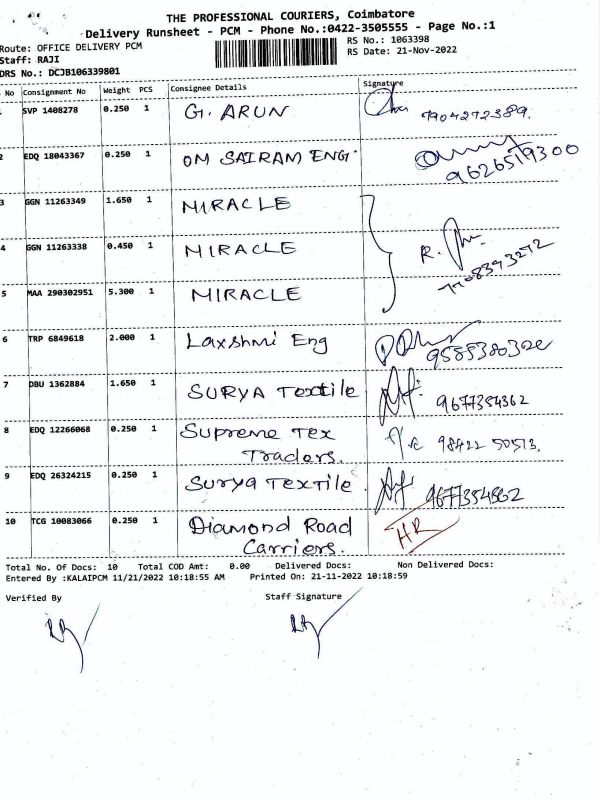 THE PROFESSIONAL COURIERS, Coimbatore
Delivery Runsheet - PCM - Phone No.:0422-3505555 - Page No.:1
Route: OFFICE DELIVERY PCM
RS No.: 1063398
Staff: RAJI
RS Date: 21-Nov-2022
DRS No.: DCJB106339801
No Consignment No Weight PCS Consignee Details Signature
SVP 1408278 0.250 1 G. ARUN 7904272389.
2 EDQ 18043367 0.250 1 OM SAIRAM ENG. 9626519300
3 GGN 11263349 1.650 1 MIRACLE
4 GGN 11263338 0.450 1 MIRACLE R.
5 MAA 290302951 5.300 1 MIRACLE
6 TRP 6849618 2.000 1 Laxshmi Eng
7 DBU 1362884 1.650 1 SURYA Textile 9677354362
8 EDQ 12266068 0.250 1 Supreme Tex 98422 50513.
Traders.
9 EDQ 26324215 0.250 1 Surya Textile. 9677354362
10 TCG 10083066 0.250 1 Diamond Road HR
Carriers.
Total No. Of Docs: 10 Total COD Amt: 0.00 Delivered Docs: Non Delivered Docs:
Entered By :KALAIPCM 11/21/2022 10:18:55 AM Printed On: 21-11-2022 10:18:59
Verified By Staff Signature